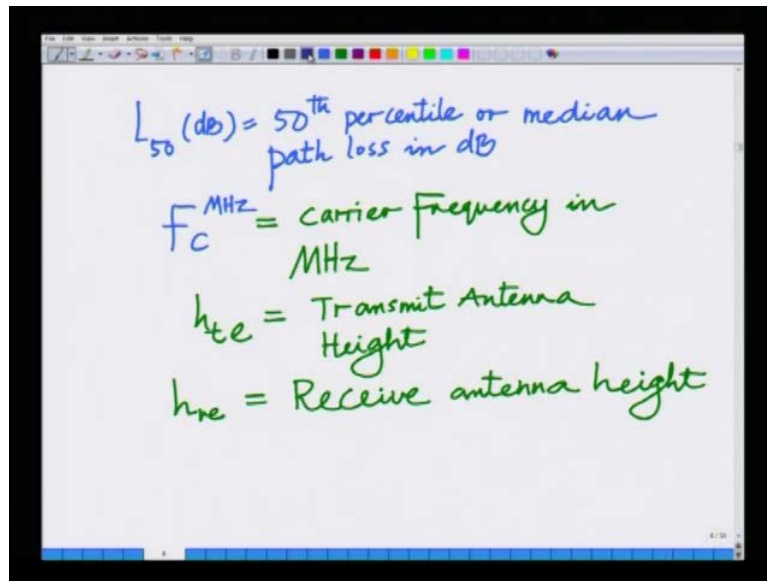 File Edit View Insert Actions Tools Help
L50 (dB) = 50th percentile or median
path loss in dB
fc MHz = carrier frequency in
MHz
hte = Transmit Antenna
Height
hre = Receive antenna height